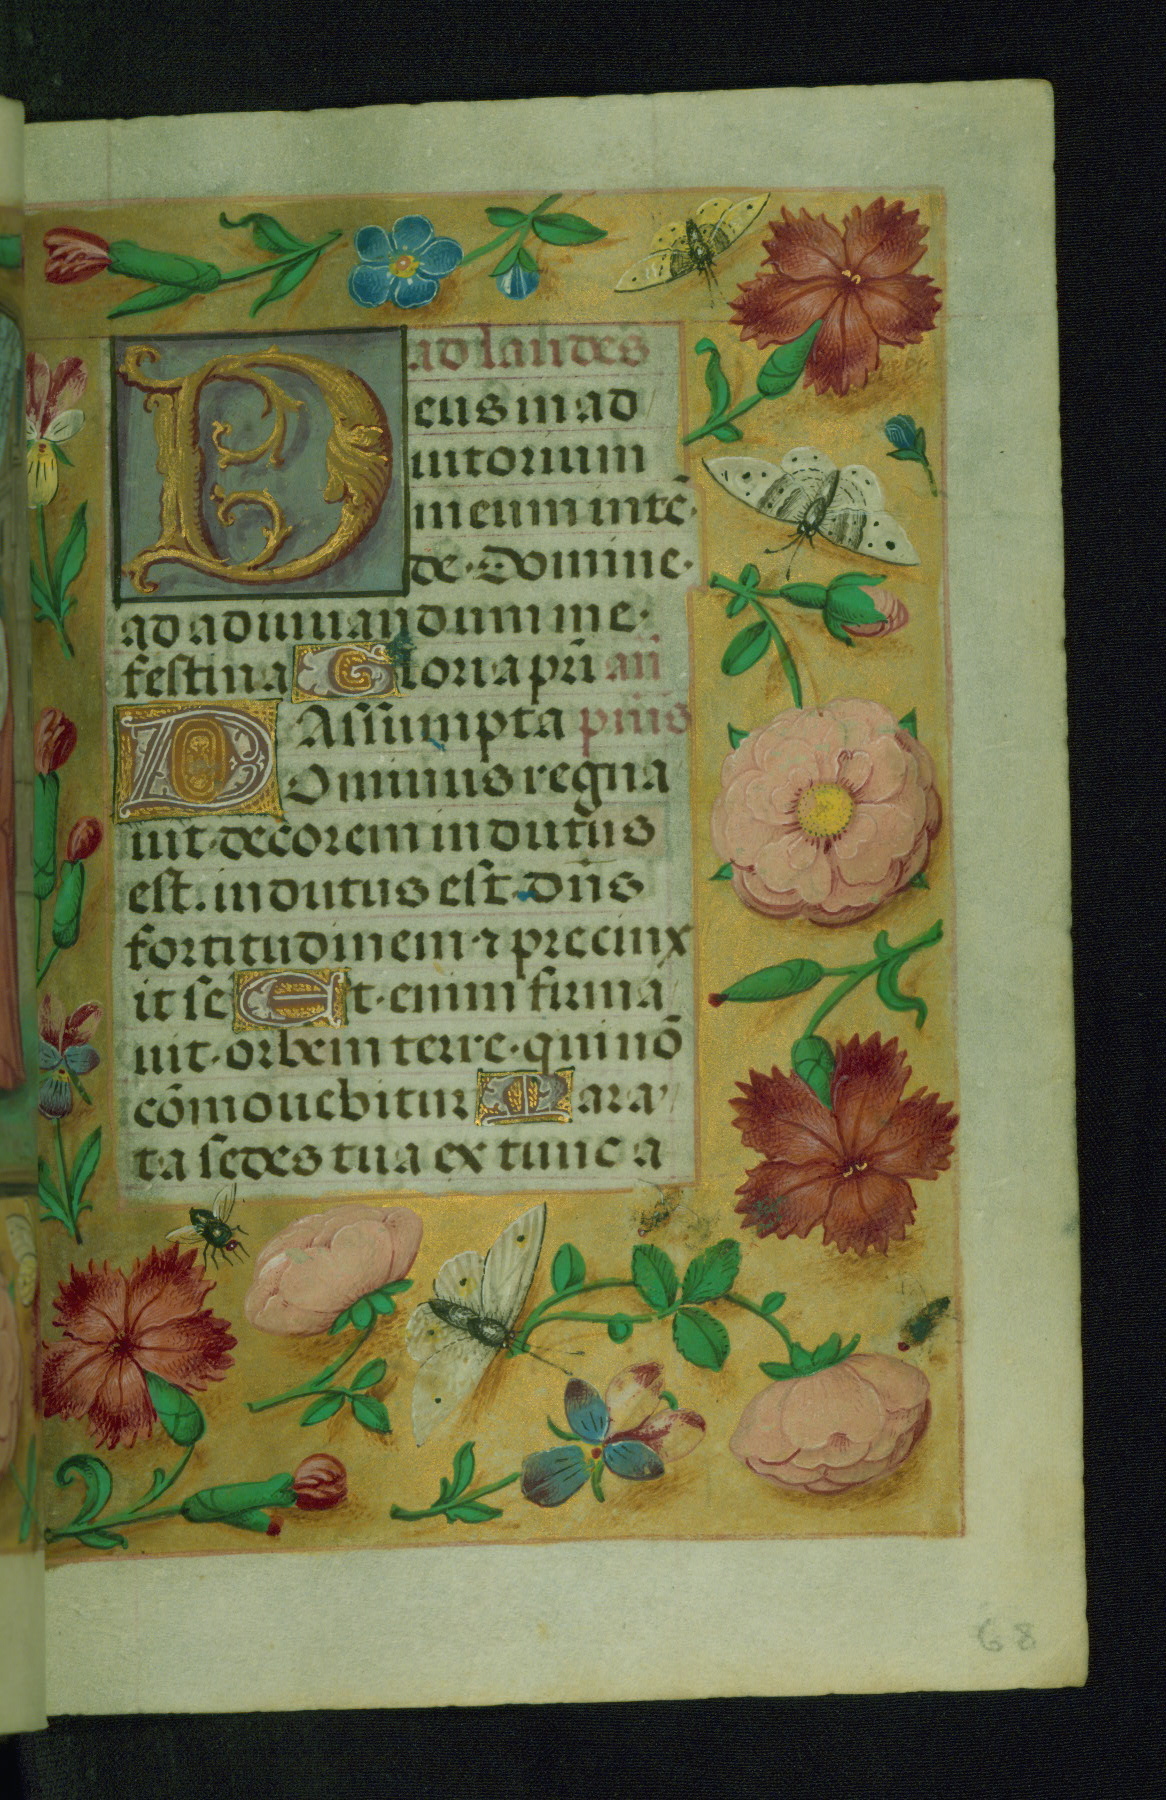 ad laudes
Deus in ad
iutorium
meum intē
de. Domine.
ad adiuuandum me.
festina Glori a pri añ
Assumpta pm̄s
Dominus regna
uit. decorem indutus
est. indutus est. dn̄s
fortitudinem. ⁊ precinx
it se Et. enim firma
uit. orbem terre. qui nō
cōmouebitur Para
ta sedes tua ex tunc a
68